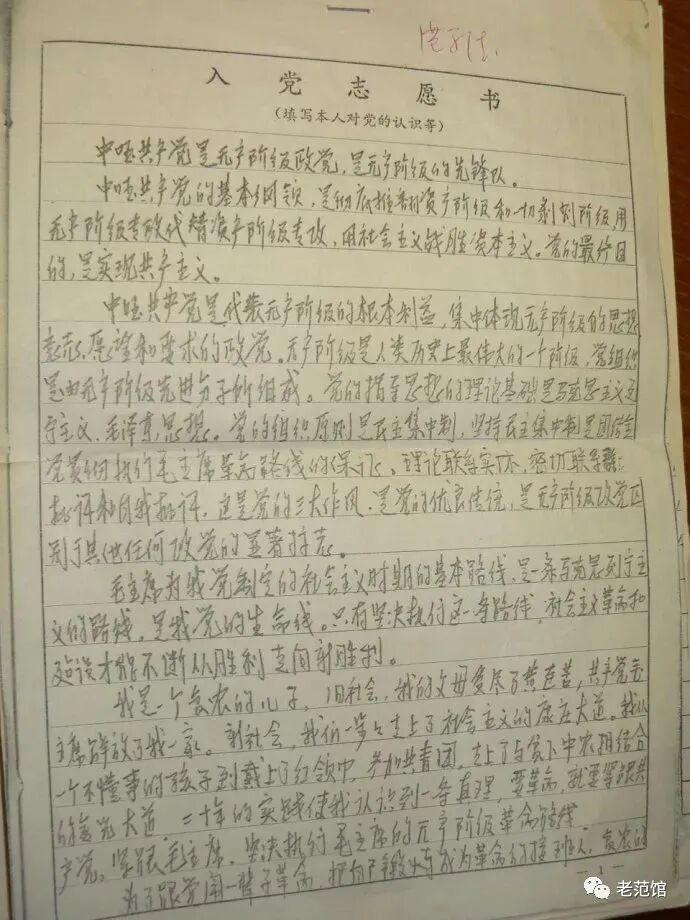 入党志愿书
(填写本人对党的认识等)
中国共产党是无产阶级政党,是无产阶级的先锋队。
中国共产党的基本纲领,是彻底推翻资产阶级和一切剥削阶级,用
无产阶级专政代替资产阶级专政,用社会主义战胜资本主义。党的最终目
的,是实现共产主义。
中国共产党是代表无产阶级的根本利益,集中体现无产阶级的思想
意志、愿望和要求的政党。无产阶级是人类历史上最伟大的一个阶级,党组织
是由无产阶级先进分子所组成。党的指导思想的理论基础是马克思主义列
宁主义、毛泽东思想。党的组织原则是民主集中制,坚持民主集中制是团结全
党贯彻执行毛主席革命路线的保证。理论联系实际,密切联系群
批评和自我批评,这是党的三大作风,是党的优良传统,是无产阶级政党区
别于其他任何政党的显著标志。
毛主席为我党制定的社会主义时期的基本路线,是一条马克思列宁主
义的路线,是我党的生命线。只有坚决执行这一条路线,社会主义革命和
建设才能不断从胜利走向新胜利。
我是一个贫农的儿子,旧社会,我的父母受尽了黄连苦,共产党毛
主席解放了我一家。新社会,我们一步步走上了社会主义的康庄大道。我从
一个不懂事的孩子到戴上了红领巾,参加共青团,走上了与贫下中农相结合
的金光大道,二十年的实践使我认识到一条真理,要革命,就要紧跟共
产党。紧跟毛主席,坚决执行毛主席的无产阶级革命路线
为了跟党闹一辈子革命,把自己锻炼成为革命的接班人,贫农的
1
老范馆